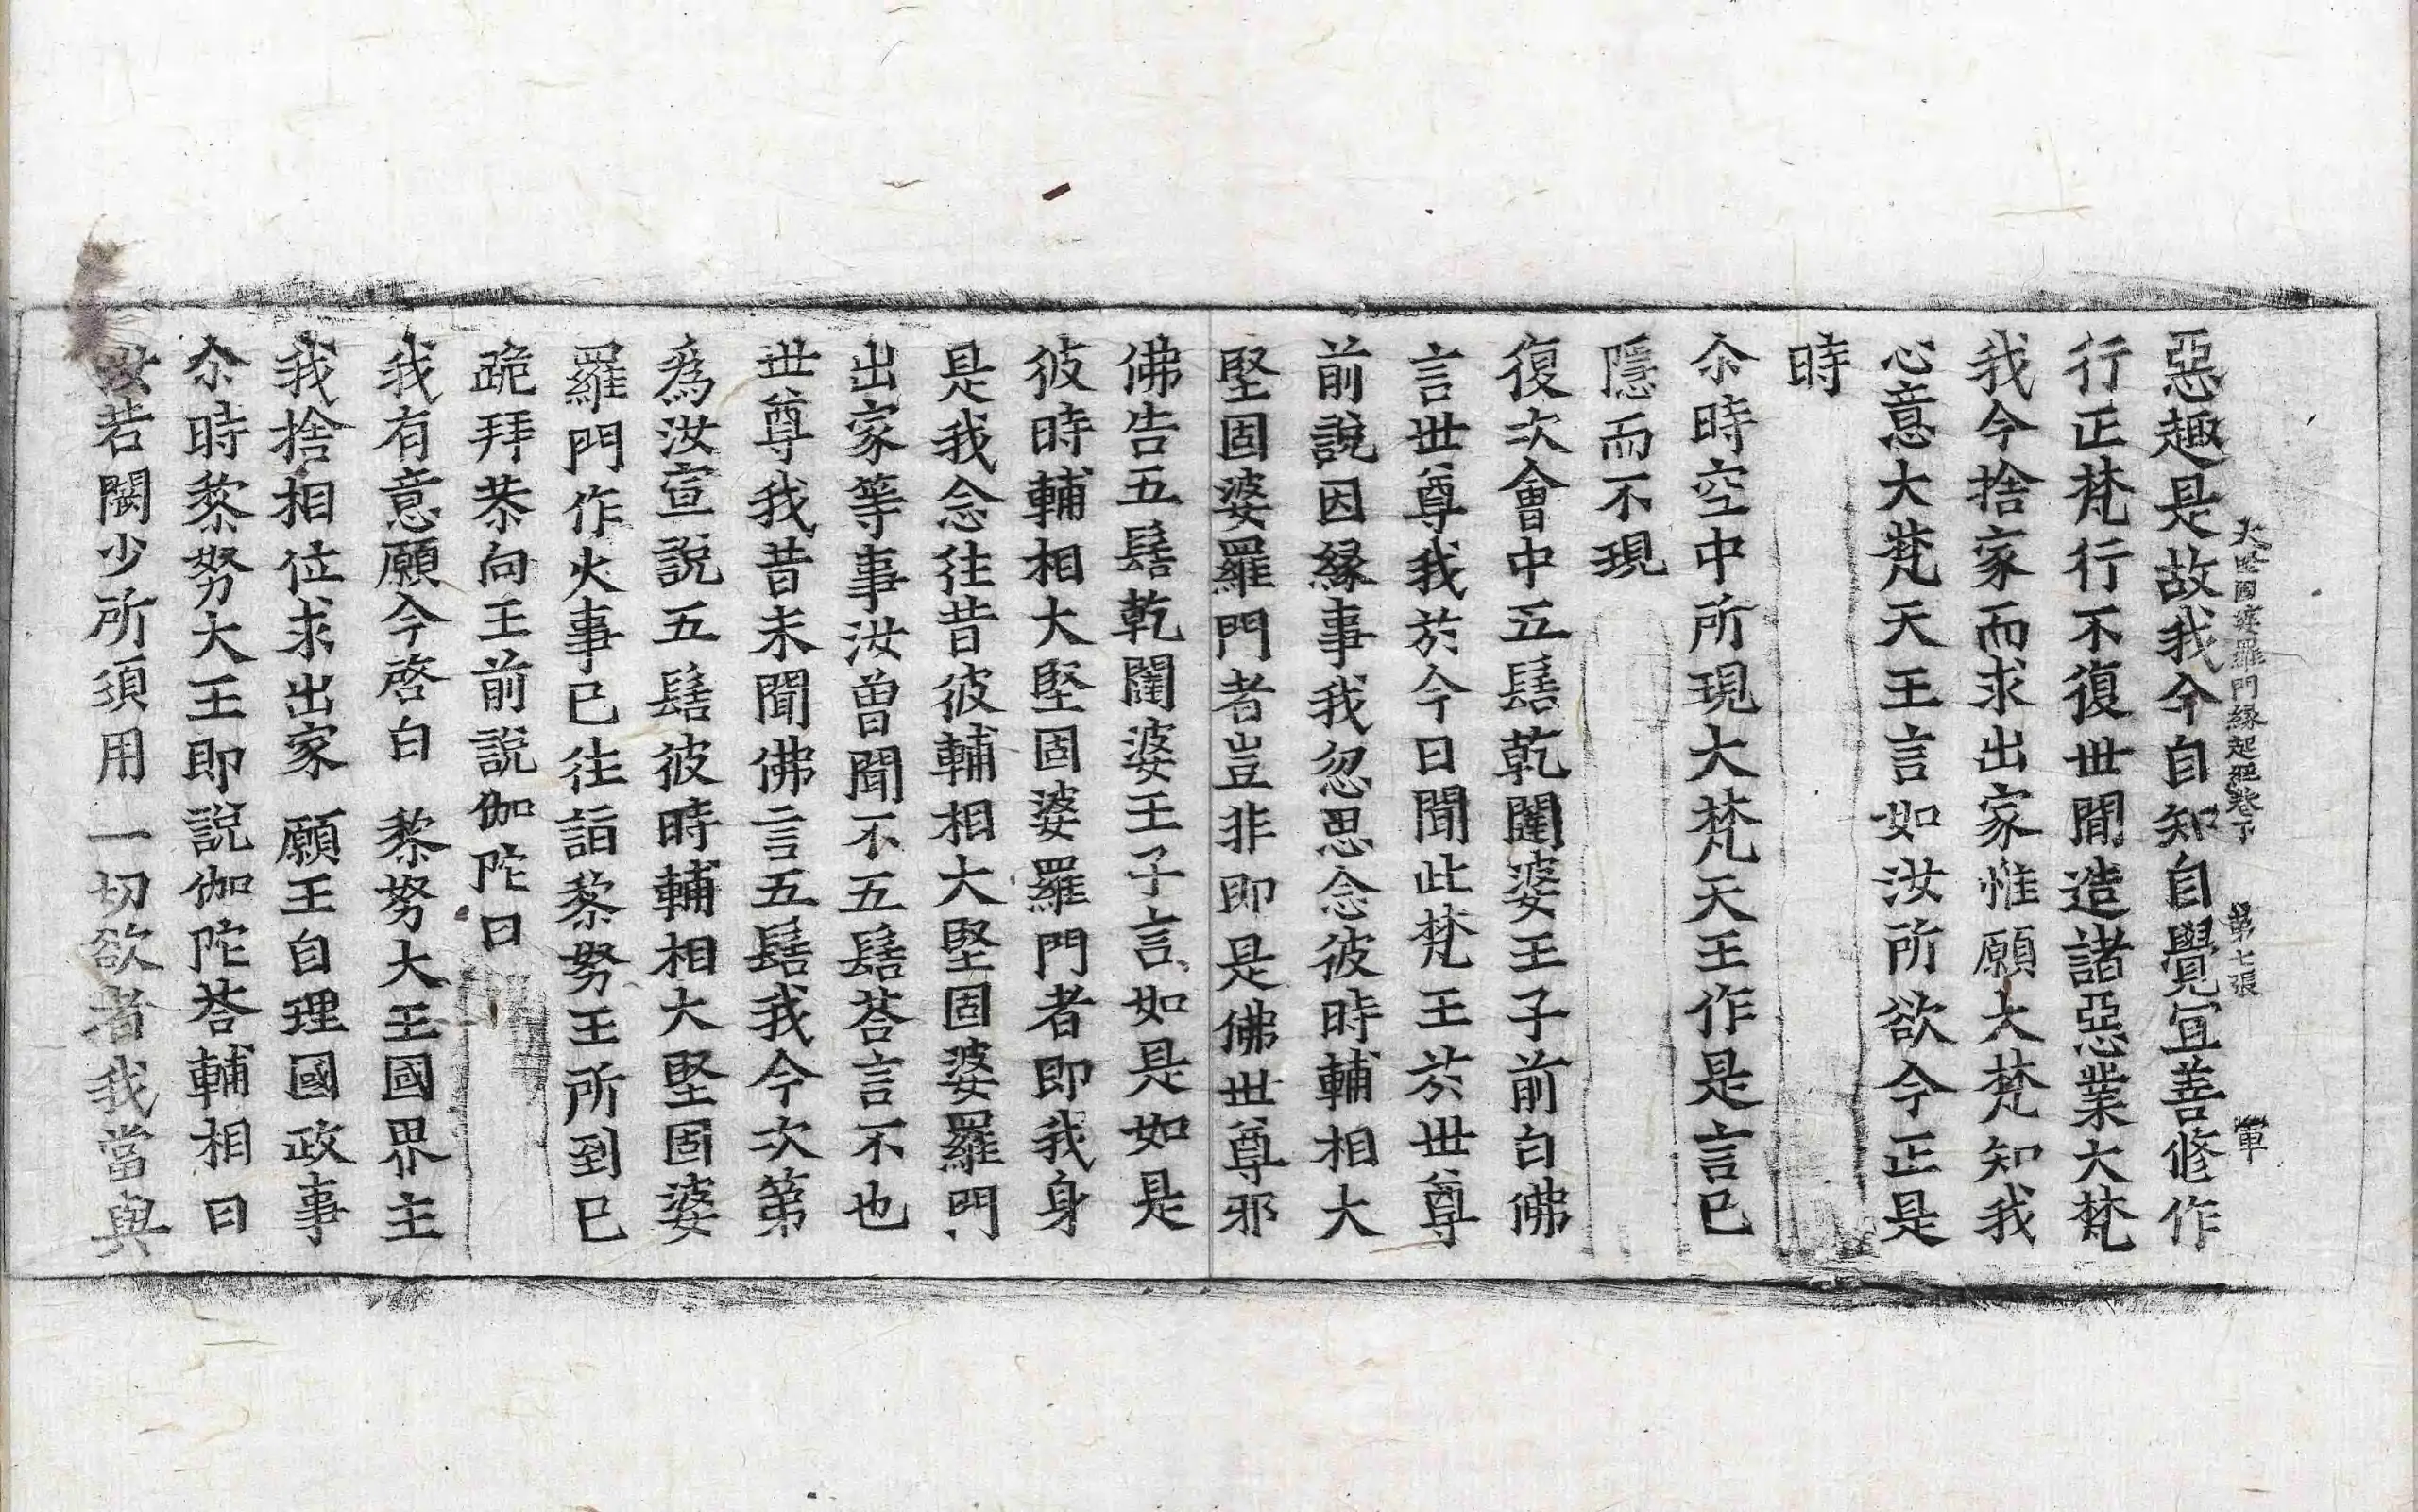 大堅固婆羅門緣起經卷下 第七張 軍
惡趣是故我今自知自覺宜善修作
行正梵行不復世間造諸惡業大梵
我今捨家而求出家惟願大梵知我
心意大梵天王言如汝所欲今正是
時
尒時空中所現大梵天王作是言已
隱而不現
復次會中五髻乾闥婆王子前白佛
言世尊我於今日聞此梵王於世尊
前說因緣事我忽思念彼時輔相大
堅固婆羅門者豈非即是佛世尊邪
佛告五髻乾闥婆王子言如是如是
彼時輔相大堅固婆羅門者即我身
是我念往昔彼輔相大堅固婆羅門
出家等事汝曾聞不五髻荅言不也
世尊我昔未聞佛言五髻我今次第
爲汝宣說五髻彼時輔相大堅固婆
羅門作火事已往詣黎努王所到已
跪拜恭向王前說伽陀曰
我有意願今啓白 黎努大王國界主
我捨相位求出家 願王自理國政事
尒時黎努大王即說伽陀荅輔相曰
汝若闕少所須用 一切欲者我當與